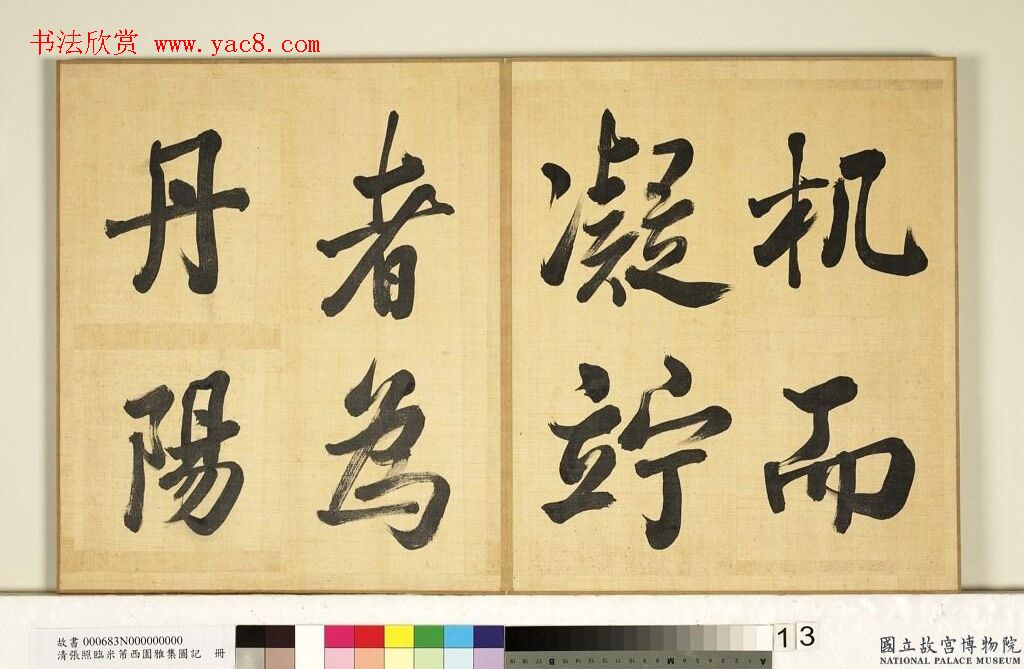 书法欣赏 www.yac8.com
机而
凝竚
者為
丹陽
故書 000683N000000000
清張照臨米芾西園雅集圖記 冊
13
國立故宮博物院
NATIONAL PALACE MUSEUM